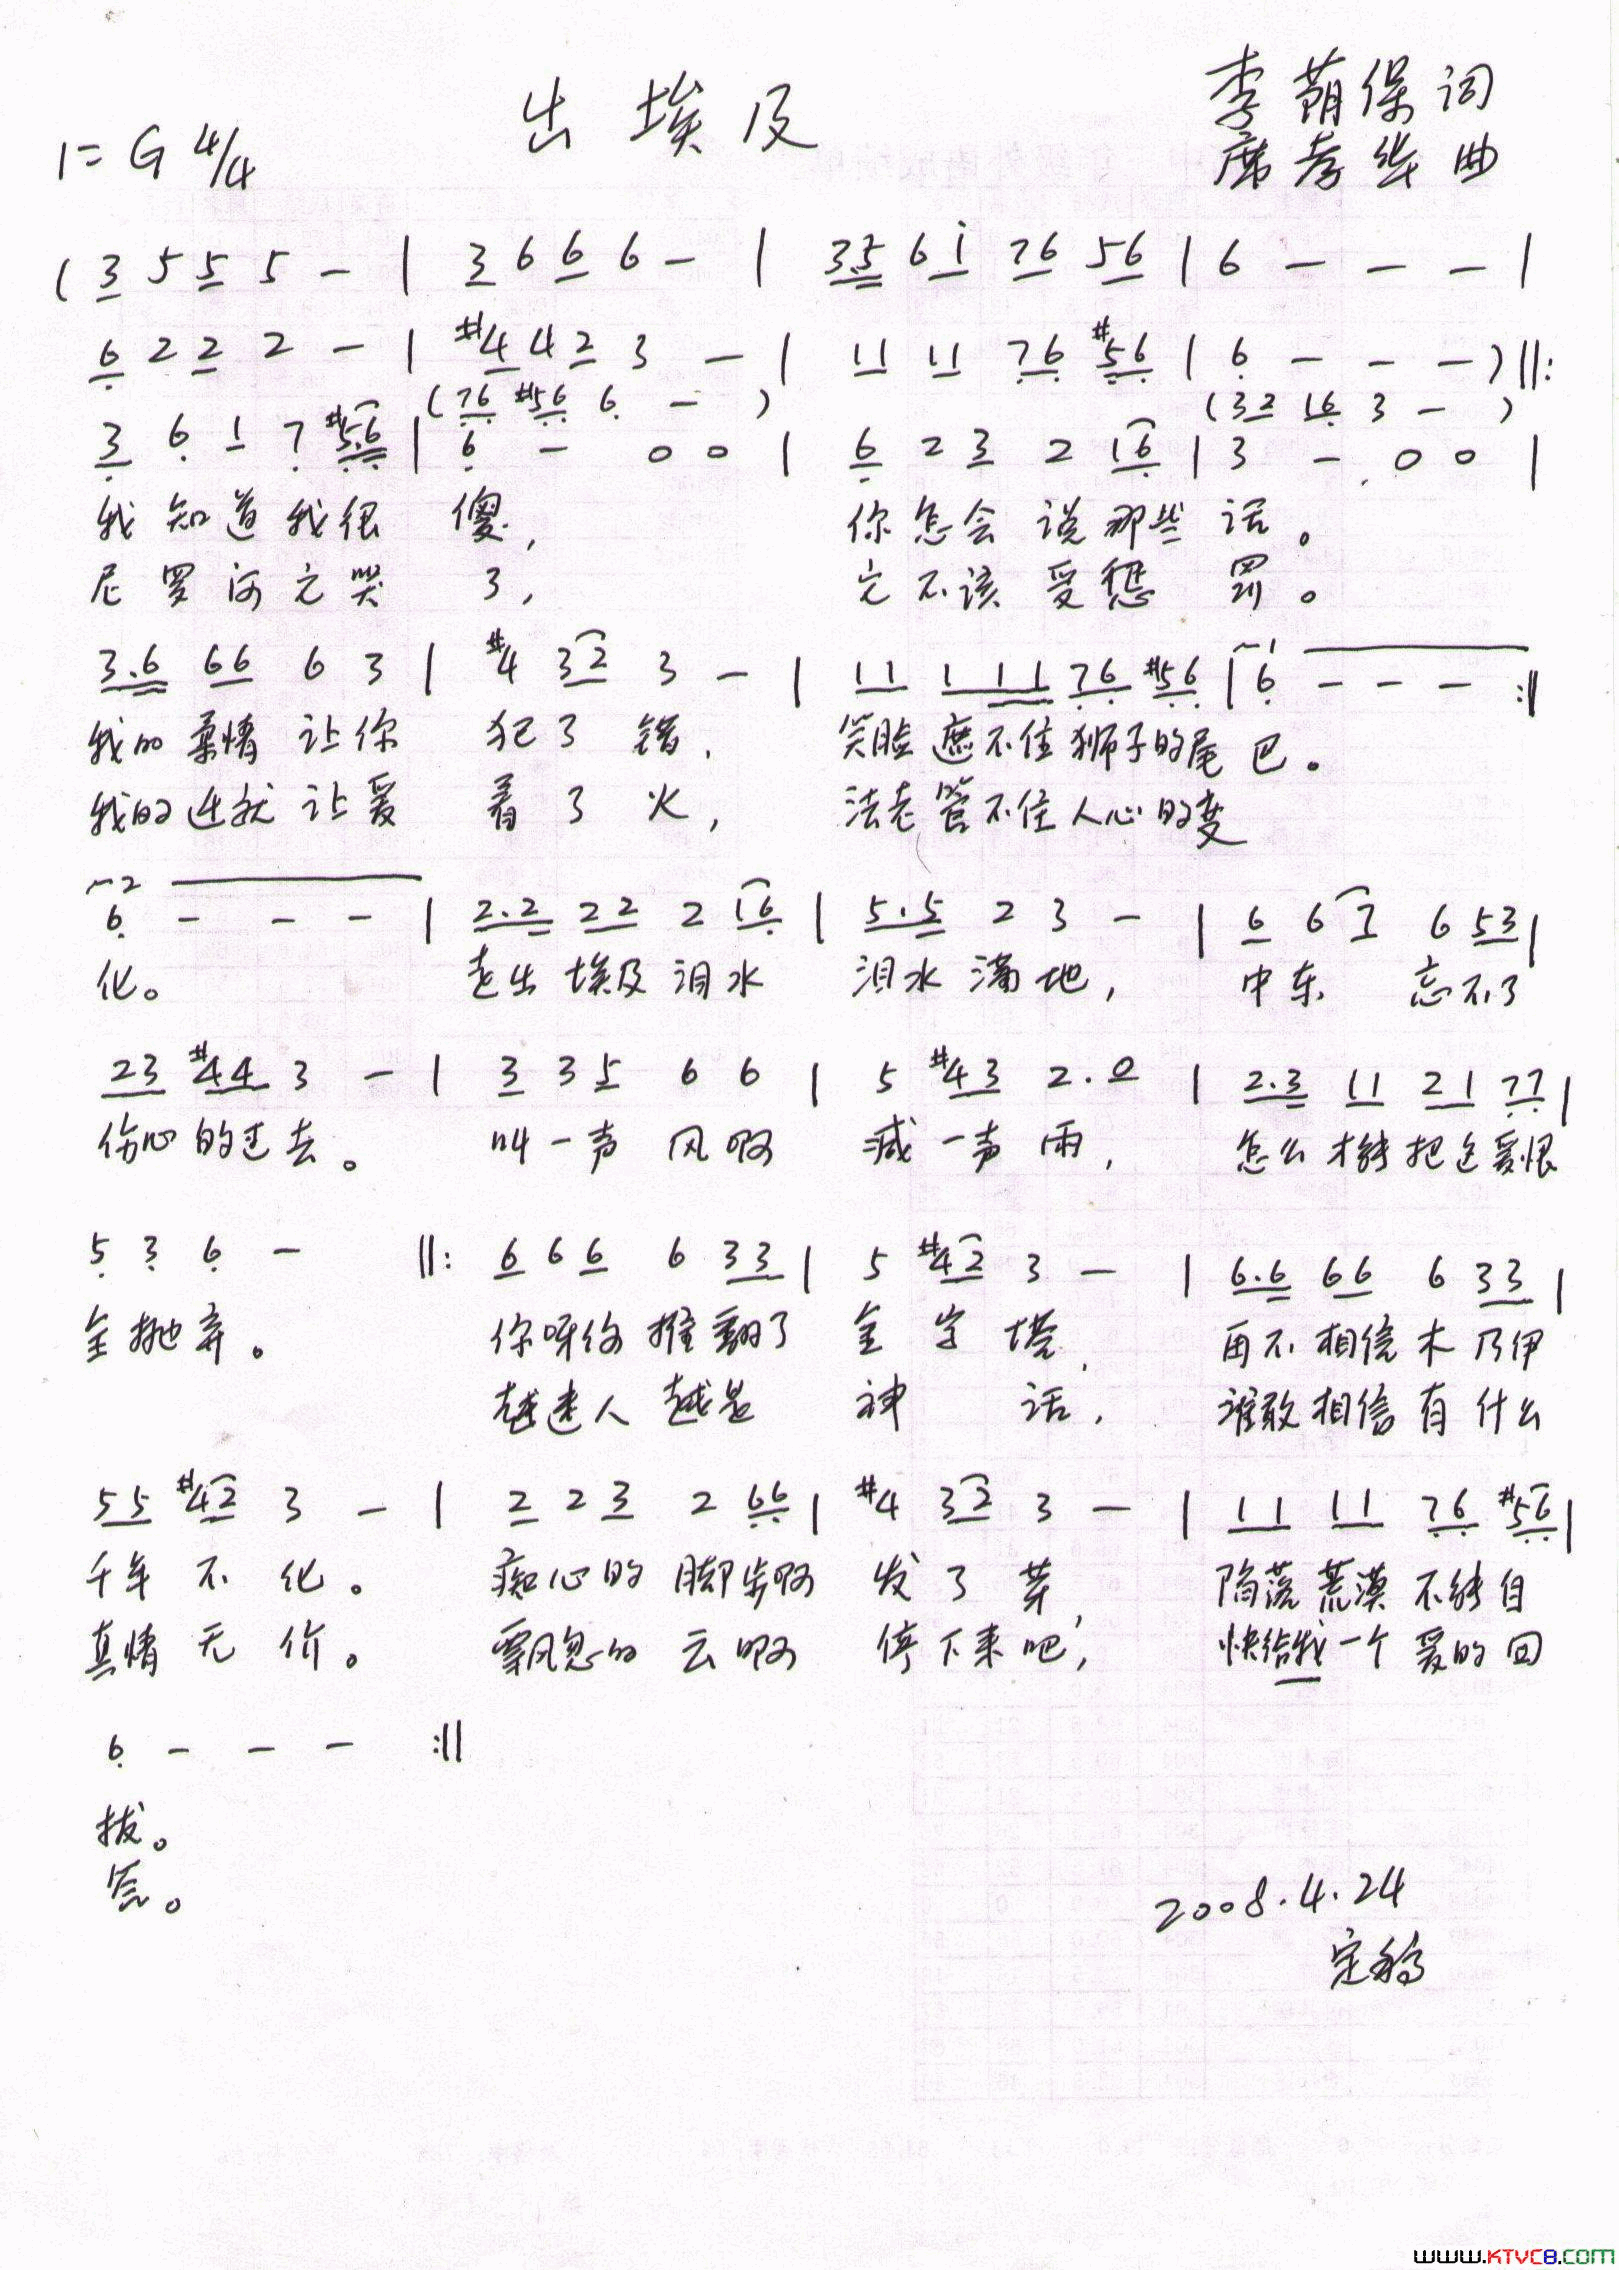 出埃及
李萠保词
席孝华曲
1=G 4/4
(3 5 5 5 - | 3 6 6 6 - | 3.5 6 i 76 56 | 6 - - - |
6 2 2 2 - | #4 4 2 3 - | 11 11 76 #56 | 6 - - - ) ||:
(76 #56 6 - ) (32 16 3 - )
3 6 1 7 #5.6 | 6 - 0 0 | 6 2 3 2 16 | 3 - 0 0 |
我知道我很 傻, 你怎会说那些话。
尼罗河它哭 了, 它不该受惩 罚。
3.6 66 6 3 | #4 32 3 - | 11 1 11 76 #56 | 6 - - - :||
我的柔情让你 犯了错, 笑脸遮不住狮子的尾巴。
我的迁就让爱 着了火, 法老管不住人心的变
6 - - - | 2.2 22 2 16 | 5.5 2 3 - | 6 6 7 6 53 |
化。 走出埃及泪水 泪水满地, 中东 忘不了
23 #44 3 - | 3 3 5 6 6 | 5 #43 2.0 | 2.3 11 21 77 |
伤心的过去。 叫一声风啊 减一声雨, 怎么才能把这爱恨
5 3 6 - ||: 6 6 6 6 33 | 5 #42 3 - | 6.6 66 6 33 |
全抛弃。 你呀你推翻了 金字塔, 再不相信木乃伊
越迷人越是 神话, 谁敢相信有什么
55 #42 3 - | 2 2 3 2 66 | #4 32 3 - | 11 11 76 #56 |
千年不化。 痴心的脚步啊 发了芽, 陷落荒漠不能自
真情无价。 飘忽的云啊 停下来吧, 快给我一个爱的回
6 - - - :||
拔。
答。
2008.4.24
定稿
www.KTVC8.com